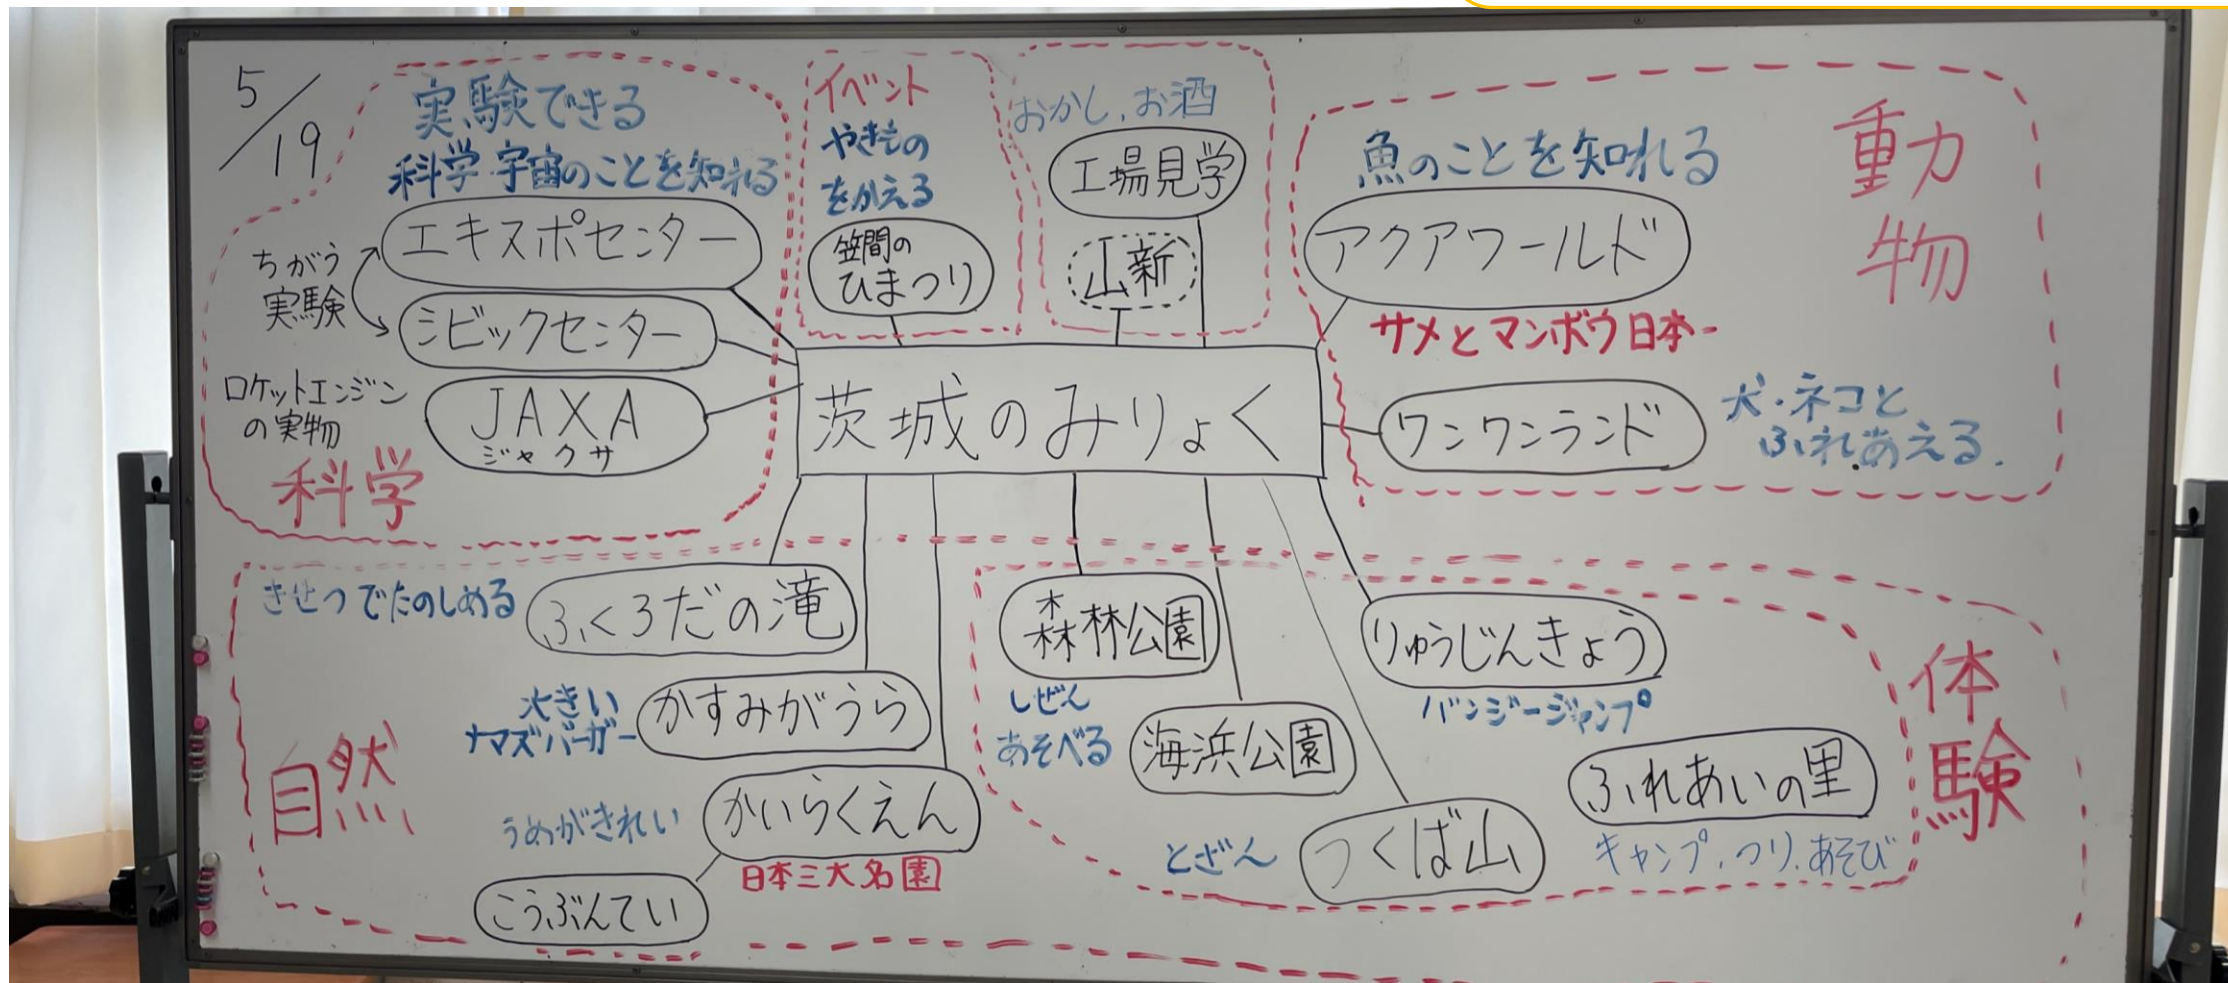 5/19
実験できる
科学・宇宙のことを知れる
エキスポセンター
ちがう
実験
シビックセンター
ロケットエンジン
の実物
JAXA
ジャクサ
科学
イベント
やきもの
をかえる
笠間の
ひまつり
おかし、お酒
工場見学
山新
動物
魚のことを知れる
アクアワールド
サメとマンボウ日本一
ワンワンランド
犬・ネコと
ふれあえる.
茨城のみりょく
きせつでたのしめる
ふくろだの滝
大きい
ナマズバーガー
かすみがうら
自然
うめがきれい
かいらくえん
日本三大名園
こうぶんてい
森林公園
しぜん
あそべる
海浜公園
とざん
つくば山
りゅうじんきょう
バンジージャンプ
ふれあいの里
キャンプ、つり、あそび
体験